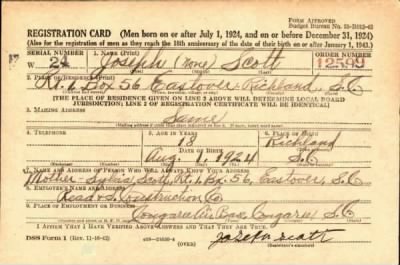 Form Approved
Budget Bureau No.
REGISTRATION CARD (Men born on or after July 1, 1924, and on or before December 31, 1924)
(Also for the registration of men as they reach the 18th anniversary of the date of their birth on or after January 1, 1943.)
SERIAL NUMBER 1. NAME (Print) ORDER NUMBER
W 24 Joseph (none) Scott 12599
2. PLACE OF RESIDENCE (Print)
Rt. 1, Box 56, Eastover, Richland, S.C.
[THE PLACE OF RESIDENCE GIVEN ON LINE 2 ABOVE WILL DETERMINE LOCAL BOARD
JURISDICTION; LINE 2 OF REGISTRATION CERTIFICATE WILL BE IDENTICAL]
3. MAILING ADDRESS
Same
4. TELEPHONE 5. AGE IN YEARS 6. PLACE OF BIRTH
18 Richland
DATE OF BIRTH
Aug. 1, 1924 S.C.
7. NAME AND ADDRESS OF PERSON WHO WILL ALWAYS KNOW YOUR ADDRESS
Mother - Scott, Rt. 1, Box 56, Eastover, S.C.
8. EMPLOYER'S NAME AND ADDRESS
Construction Co.
9. PLACE OF EMPLOYMENT OR BUSINESS
Congaree Air Base, Congaree, S.C.
I AFFIRM THAT I HAVE VERIFIED ABOVE ANSWERS AND THAT THEY ARE TRUE.
DSS Form 1 joseph scott